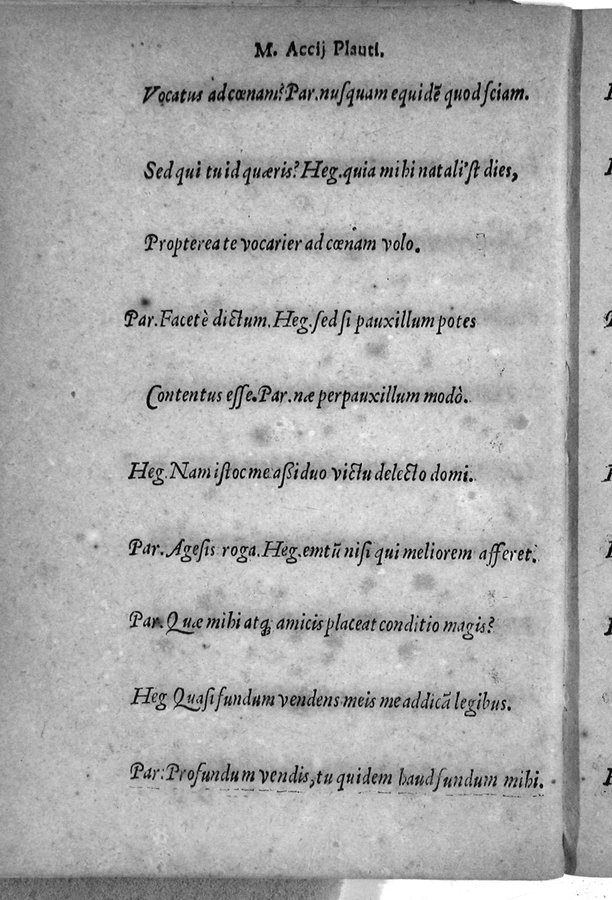 M. Accij Plauti.
Vocatus ad cœnam? Par. nuſquam equidẽ quod ſciam.
Sed qui tu id quæris? Heg. quia mihi natali'ſt dies,
Propterea te vocarier ad cœnam volo.
Par. Facetè dictum. Heg. ſed ſi pauxillum potes
Contentus eſſe. Par. næ perpauxillum modò.
Heg. Nam iſtoc me aßiduo victu delecto domi.
Par. Ageſis roga. Heg. emtũ niſi qui meliorem afferet.
Par. Quæ mihi atq; amicis placeat conditio magis?
Heg Quaſi fundum vendens meis me addicã legibus.
Par. Profundum vendis, tu quidem haud fundum mihi.